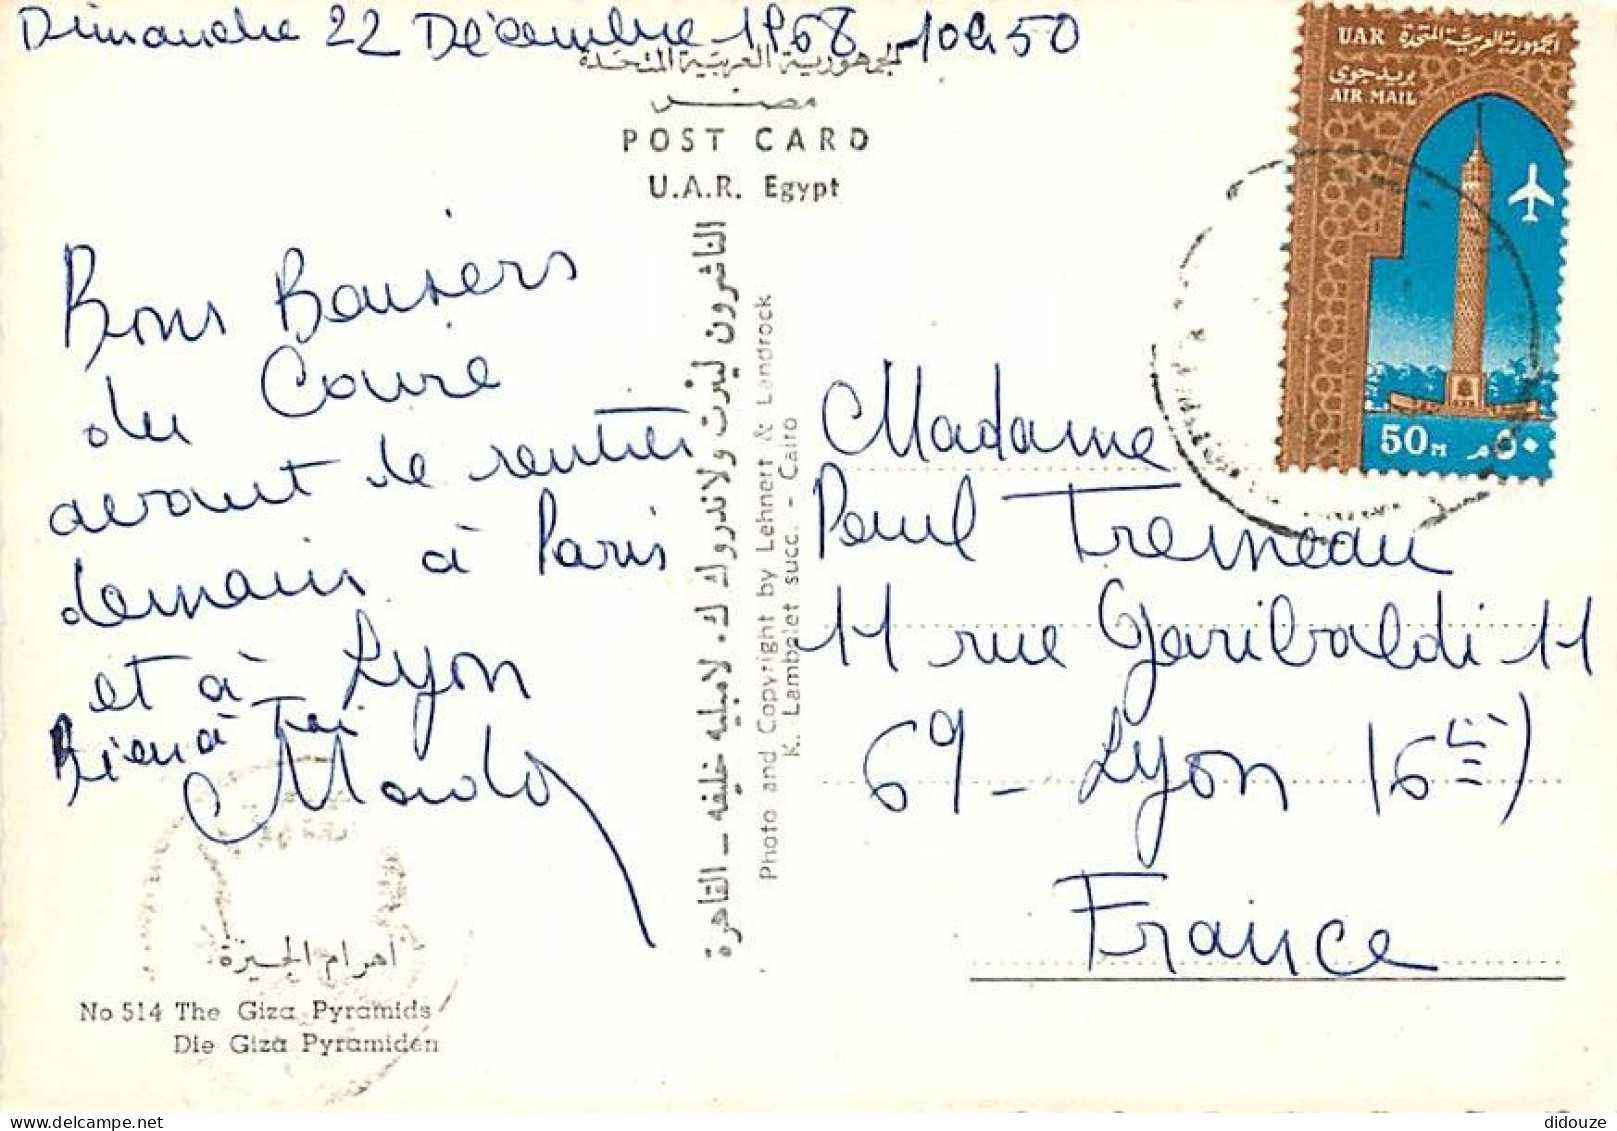 Dimanche 22 Décembre 1968 10h50
الجمهورية العربية المتحدة
مصر
POST CARD
U.A.R. Egypt
UAR الجمهورية العربية المتحدة
بريد جوى
AIR MAIL
50 M ٥٠ م
Bons Baisers
du Caire
avant de rentrer
demain à Paris
et à Lyon
Bien à Toi
الناشرون لينرت ولاندروك ك. لامبليه خليفه – القاهرة
Photo and Copyright by Lehnert & Landrock
K. Lambelet succ. - Cairo
Madame
Paul Tremeau
11 rue Garibaldi 11
69 - Lyon (6è)
France
أهرام الجيزة
No 514 The Giza Pyramids
Die Giza Pyramiden
didouze